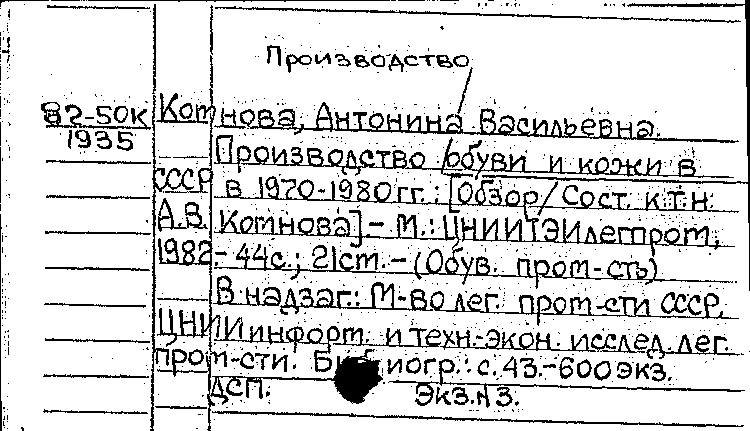 Производство
82-50К Котнова, Антонина Васильевна.
1935 Производство обуви и кожи в
СССР в 1970-1980 гг.: [Обзор/Сост. к.т.н.
А.В. Котнова].- М.: ЦНИИТЭИлегпром,
1982.- 44с.; 21см.- (Обув. пром-сть)
В надзаг.: М-во лег. пром-сти СССР.
ЦНИИ информ. и техн.-экон. исслед. лег.
пром-сти. Библиогр.: с.43.-600 экз.
ДСП. Экз.N3.